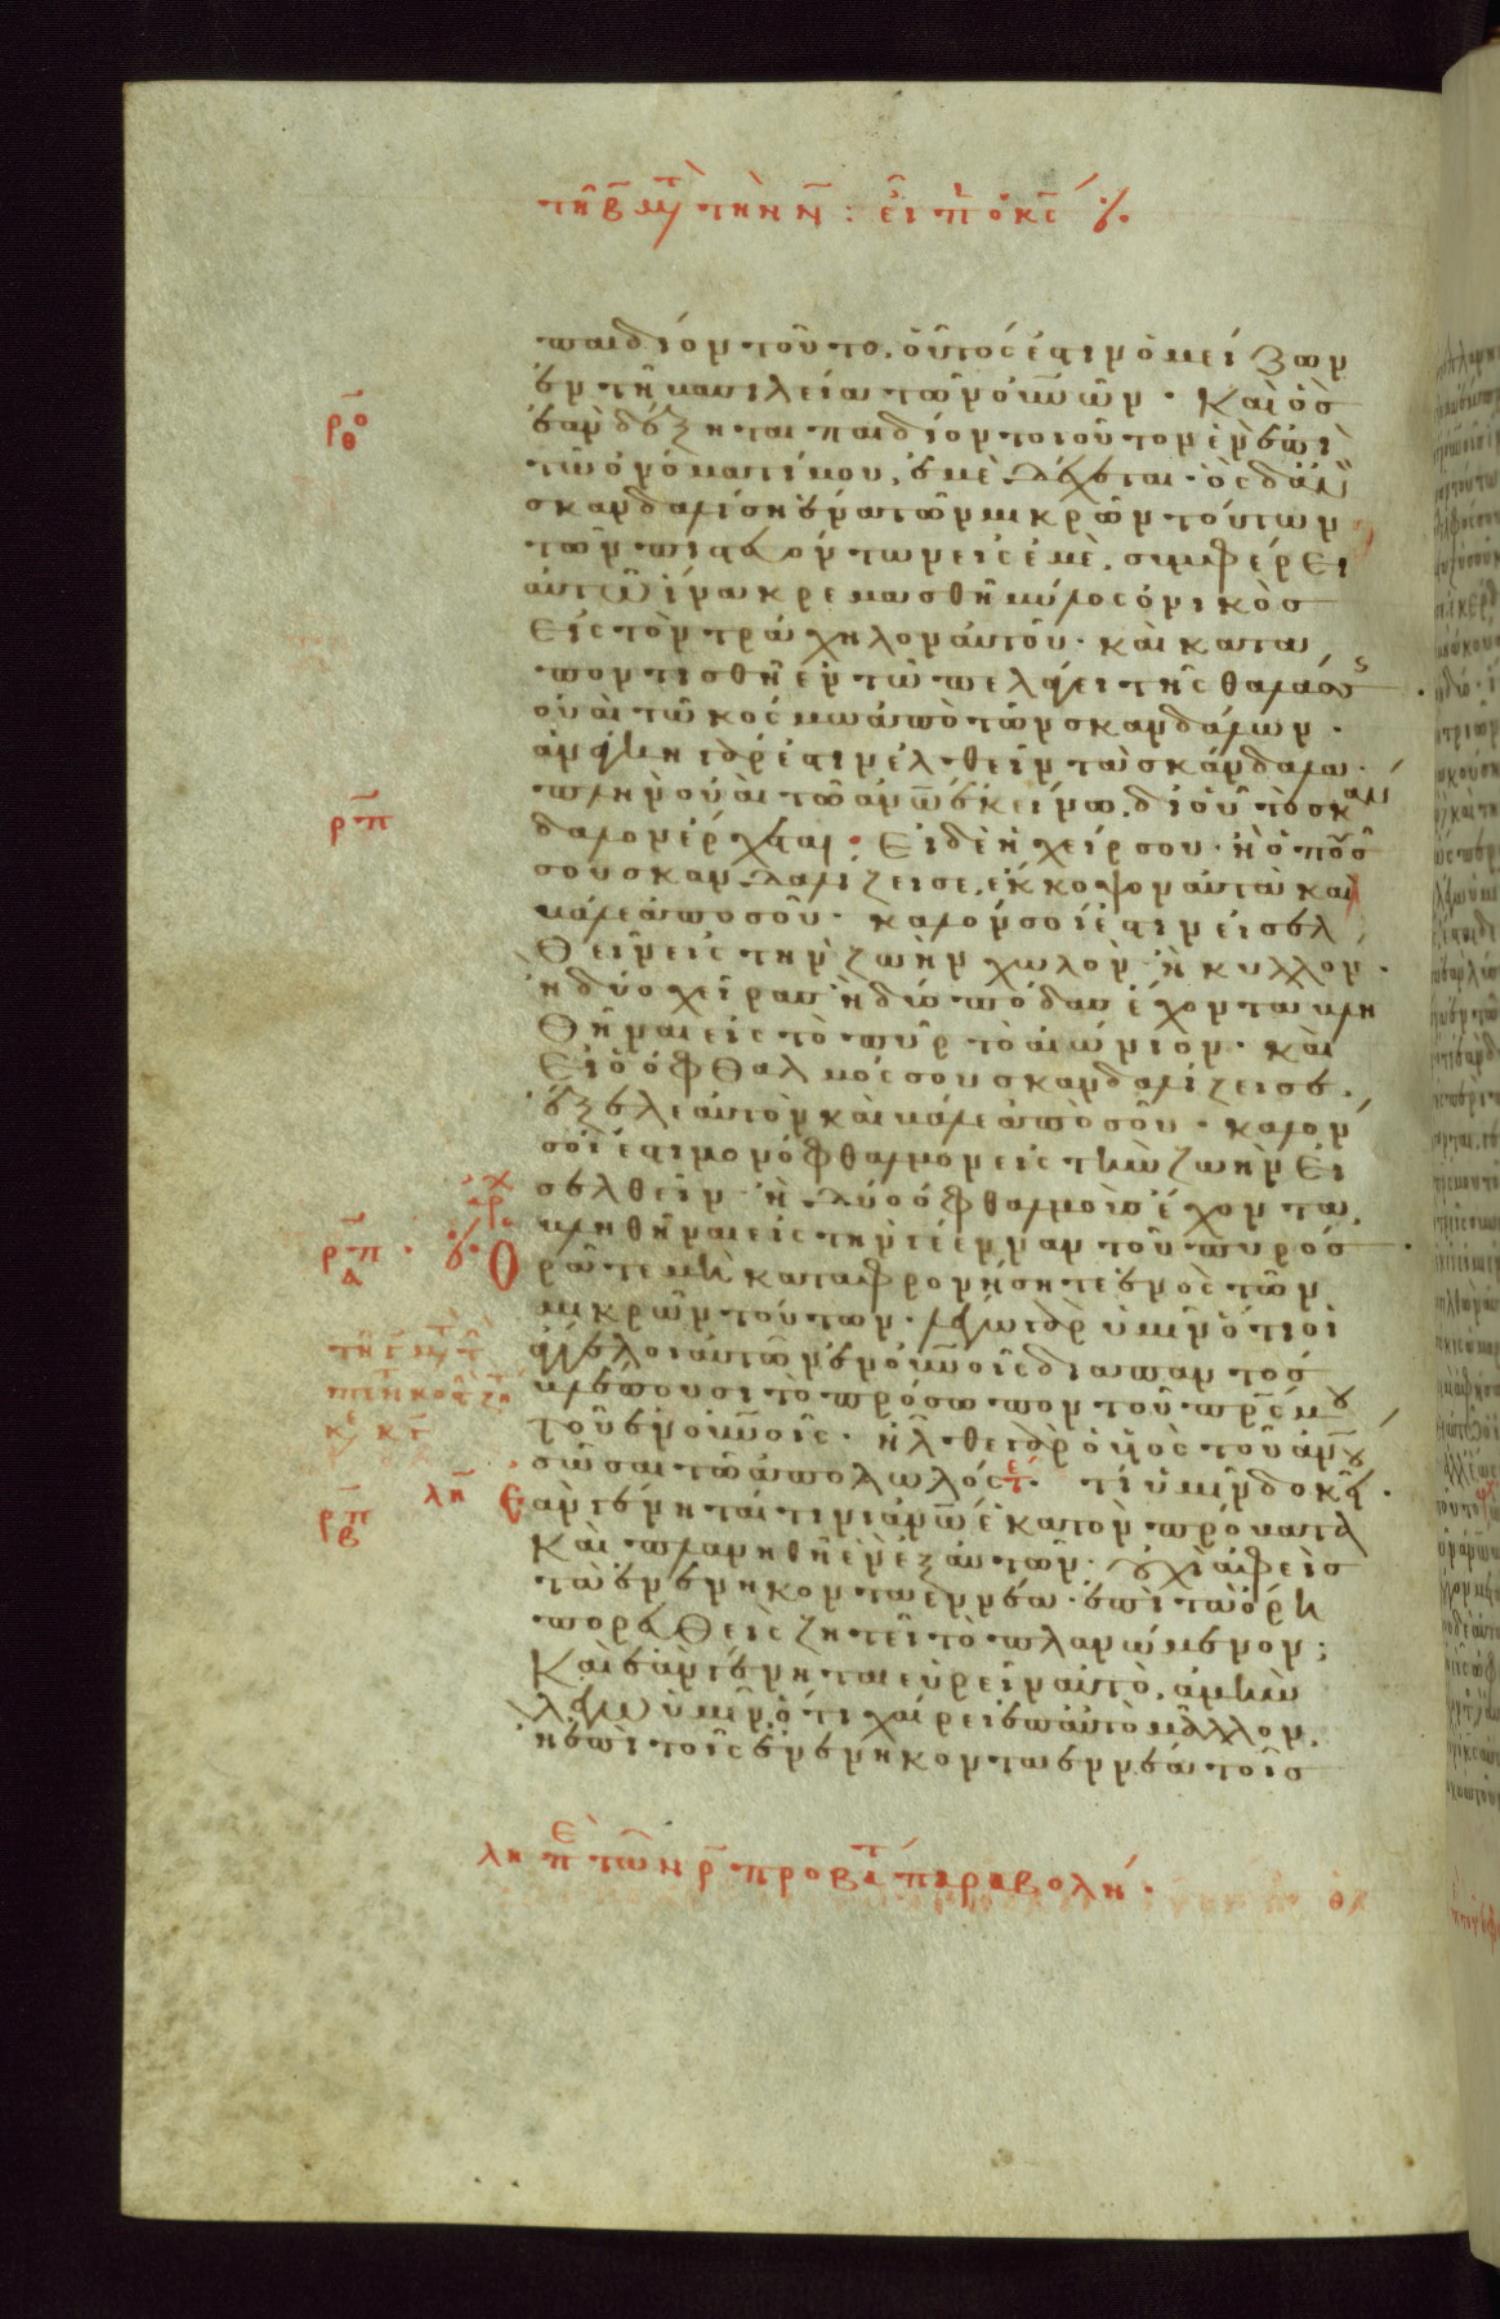 τῇ β μτ τὴν Ν : εἶπεν ὁ κς
παιδίον τοῦτο. οὗτός ἐστιν ὁ μείζων
ἐν τῇ βασιλεία τῶν οὐνῶν · Καὶ ὃς
ροθ
ἐὰν δέξηται παιδίον τοιοῦτον ἐν ἐπὶ
τῶ ὀνόματί μου, ἐμὲ δέχεται · ὃς δ' ἂν
σκανδαλίση ἕνα τῶν μικρῶν τούτων
τῶν πιστευόντων εἰς ἐμὲ. συμφέρει
αὐτῶ ἵνα κρεμασθῆ μύλος ὀνικὸς
Εἰς τὸν τράχηλον αὐτοῦ · καὶ κατα
ποντισθῆ ἐν τῶ πελάγει τῆς θαλάσσ
οὐαὶ τῶ κόσμω ἀπὸ τῶν σκανδάλων ·
ἀνάγκη γάρ ἐστιν ἐλθεῖν τὰ σκάνδαλα ·
πλὴν οὐαὶ τῶ ἀνω ἐκείνω. δι οὗ τὸ σκαν
ρπ
δαλον ἔρχεται · Εἰ δὲ ἡ χείρ σου · ἢ ὁ ποῦς
σου σκανδαλίζει σε, ἔκκοψον αὐτὰ καὶ
βάλε ἀπο σοῦ · καλόν σοί ἐστιν εἰσελ
Θεῖν εἰς τὴν ζωὴν χωλὸν ἢ κυλλὸν ·
ἢ δύο χεῖρας ἢ δύο πόδας ἔχοντα βλη
Θῆναι εἰς τὸ πῦρ τὸ αἰώνιον · καὶ
Εἰ ὁ ὀφθαλμός σου σκανδαλίζει σε ·
ἔξελε αὐτὸν καὶ βάλε ἀπὸ σοῦ · καλόν
σοί ἐστι μονόφθαλμον εἰς τὴν ζωὴν Εἰ
σελθεῖν ἢ δύο ὀφθαλμοὺς ἔχοντα
βληθῆναι εἰς τὴν γέενναν τοῦ πυρός
ρπα
Ὁρᾶτε μὴ καταφρονήσητε ἑνὸς τῶν
μικρῶν τούτων · λέγω γὰρ ὑμῖν ὅτι οἱ
ἄγγελοι αὐτῶν ἐν οὐνοῖς διαπαντὸς
βλέπουσι τὸ πρόσωπον τοῦ πρς μου
τοῦ ἐν οὐνοῖς · ἦλθε γὰρ ὁ υἱὸς τοῦ ἀνου
σῶσαι τὸ ἀπολωλός · τί ὑμῖν δοκεῖ ·
ρπβ λη
Ἐὰν γένηταί τινι ἀνω ἑκατὸν πρόβατα
Καὶ πλανηθῆ ἓν ἐξ αὐτῶν · οὐχὶ ἀφεὶς
τὰ ἐνενηκονταεννέα · ἐπὶ τὰ ὄρη
πορευΘεὶς ζητεῖ τὸ πλανώμενον ;
Καὶ ἐὰν γένηται εὑρεῖν αὐτὸ, ἀμὴν
λέγω ὑμῖν, ὅτι χαίρει ἐπ αὐτὸ μᾶλλον,
ἢ ἐπὶ τοῖς ἐνενηκονταεννέα τοῖς
λη πε τῶν ρ προβάτ παραβολή ·